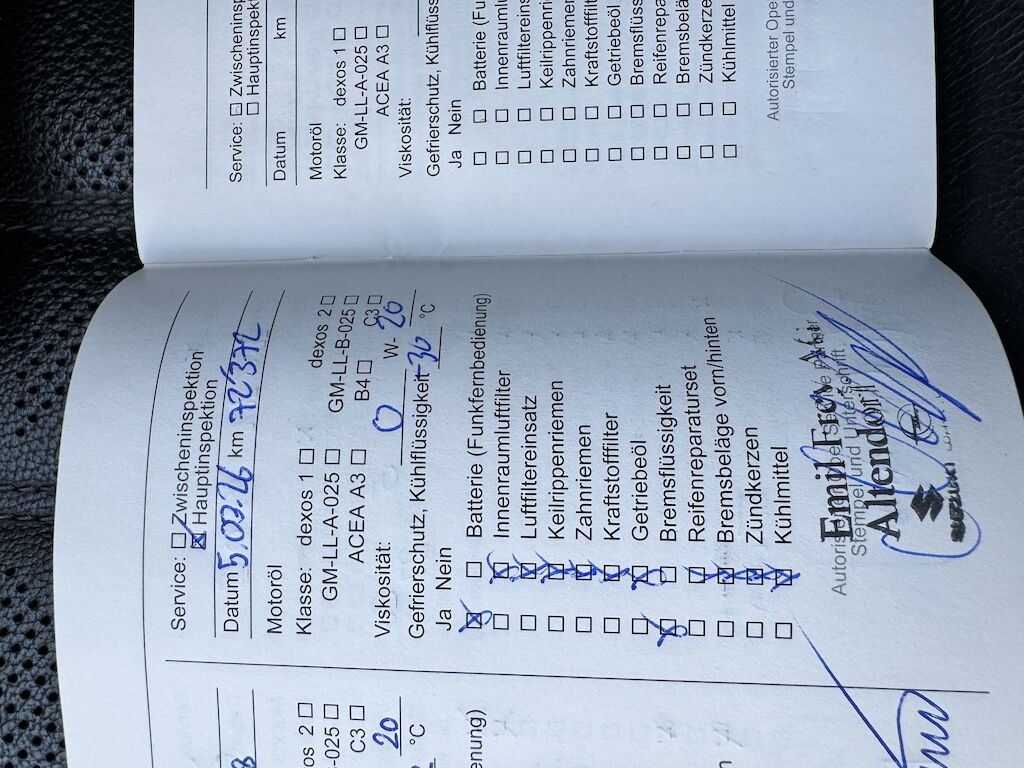 Service: ☐ Zwischeninspektion
☒ Hauptinspektion
Datum 5.03.26 km 72'372
Motoröl
Klasse: dexos 1 ☐ dexos 2 ☐
GM-LL-A-025 ☐ GM-LL-B-025 ☐
ACEA A3 ☐ B4 ☐ C3 ☐
Viskosität: 0 W- 20
Gefrierschutz, Kühlflüssigkeit -30 °C
Ja Nein
☒ ☐ Batterie (Funkfernbedienung)
☐ ☒ Innenraumluftfilter
☐ ☒ Luftfiltereinsatz
☐ ☒ Keilrippenriemen
☐ ☒ Zahnriemen
☐ ☒ Kraftstofffilter
☐ ☒ Getriebeöl
☒ ☐ Bremsflüssigkeit
☐ ☐ Reifenreparaturset
☐ ☒ Bremsbeläge vorn/hinten
☐ ☒ Zündkerzen
☐ ☒ Kühlmittel
Emil Frey AG
Stempel und Unterschrift
Altendorf
SUZUKI
Service: ☐ Zwischeninsp
☐ Hauptinspekt
Datum km
Motoröl
Klasse: dexos 1 ☐
GM-LL-A-025 ☐
ACEA A3 ☐
Viskosität:
Gefrierschutz, Kühlflüss
Ja Nein
☐ ☐ Batterie (Fun
☐ ☐ Innenraumlu
☐ ☐ Luftfiltereins
☐ ☐ Keilrippenri
☐ ☐ Zahnriemen
☐ ☐ Kraftstofffilt
☐ ☐ Getriebeöl
☐ ☐ Bremsflüss
☐ ☐ Reifenrepa
☐ ☐ Bremsbelä
☐ ☐ Zündkerze
☐ ☐ Kühlmittel
Autorisierter Ope
Stempel und
os 2 ☐
-025 ☐
C3 ☐
20
°C
enung)